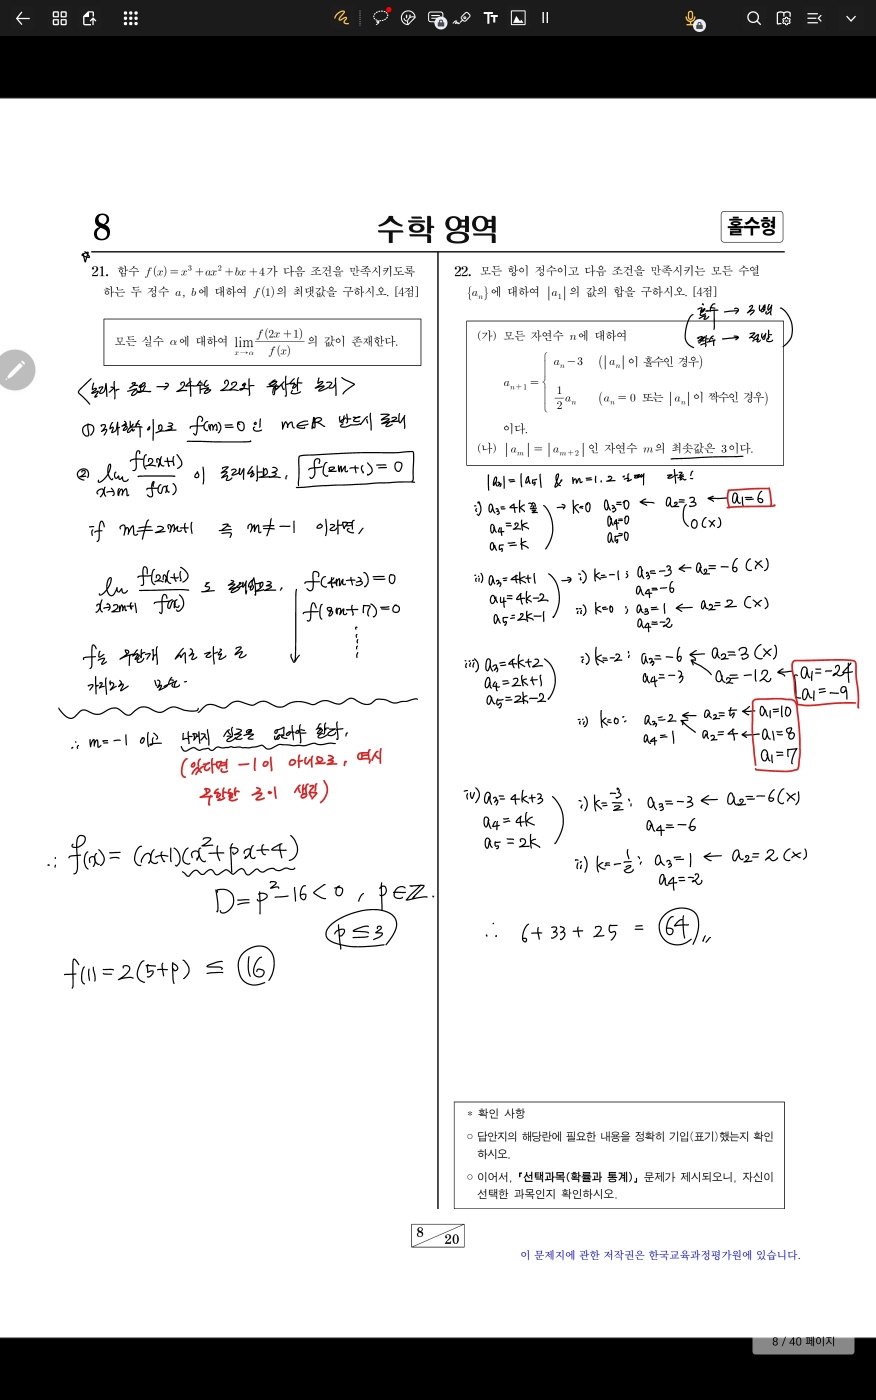 8
수학 영역
홀수형
21. 함수 f(x)=x³+ax²+bx+4가 다음 조건을 만족시키도록
하는 두 정수 a, b에 대하여 f(1)의 최댓값을 구하시오. [4점]
모든 실수 α에 대하여 lim x→α f(2x+1)/f(x) 의 값이 존재한다.
<논리가 중요 → 24수능 22와 유사한 논리>
① 3차함수이므로 f(m)=0 인 m∈ℝ 반드시 존재
② lim x→m f(2x+1)/f(x) 이 존재하므로, f(2m+1)=0
if m≠2m+1 즉 m≠-1 이라면,
lim x→2m+1 f(2x+1)/f(x) 도 존재하므로, f(4m+3)=0
f(8m+7)=0
f는 무한개 서로 다른 근
가지므로 모순.
∴ m=-1 이고 나머지 실근은 없어야 한다,
(있다면 -1이 아니므로, 역시
무한한 근이 생김)
∴ f(x)= (x+1)(x²+px+4)
D=p²-16<0, p∈ℤ.
p≤3
f(1)=2(5+p) ≤ 16
22. 모든 항이 정수이고 다음 조건을 만족시키는 모든 수열
{aₙ}에 대하여 |a₁|의 값의 합을 구하시오. [4점]
홀수 → 3 빼
짝수 → 절반
(가) 모든 자연수 n에 대하여
aₙ₊₁= { aₙ-3 (|aₙ|이 홀수인 경우)
1/2 aₙ (aₙ=0 또는 |aₙ|이 짝수인 경우)
이다.
(나) |aₘ|=|aₘ₊₂|인 자연수 m의 최솟값은 3이다.
|a₃|=|a₅| & m=1,2 일때 다르다!
i) a₃=4k 꼴 → k=0 a₃=0 ← a₂=3 ← a₁=6
a₄=2k a₄=0 0(x)
a₅=k a₅=0
ii) a₃=4k+1 → i) k=-1; a₃=-3 ← a₂=-6 (x)
a₄=4k-2 a₄=-6
a₅=2k-1 ii) k=0 ; a₃=1 ← a₂=2 (x)
a₄=-2
iii) a₃=4k+2 i) k=-2: a₃=-6 ← a₂=3 (x)
a₄=2k+1 a₄=-3 a₂=-12 ← a₁=-24
a₅=2k-2 a₁=-9
ii) k=0: a₃=2 ← a₂=5 ← a₁=10
a₄=1 a₂=4 ← a₁=8
a₁=7
iv) a₃=4k+3 i) k=-3/2: a₃=-3 ← a₂=-6(x)
a₄=4k a₄=-6
a₅=2k ii) k=-1/2: a₃=1 ← a₂=2 (x)
a₄=-2
∴ 6+33+25 = 64
* 확인 사항
○ 답안지의 해당란에 필요한 내용을 정확히 기입(표기)했는지 확인
하시오.
○ 이어서, 「선택과목(확률과 통계)」 문제가 제시되오니, 자신이
선택한 과목인지 확인하시오.
8 / 20
이 문제지에 관한 저작권은 한국교육과정평가원에 있습니다.
8 / 40 페이지